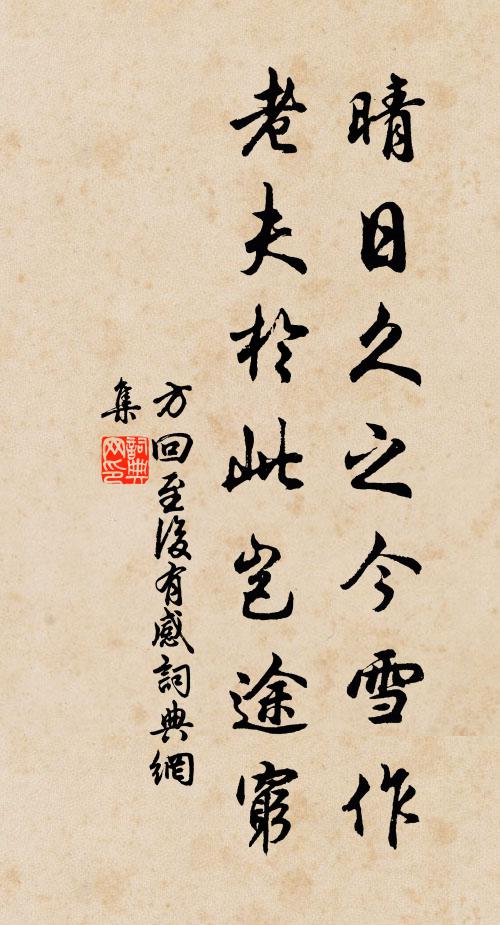 晴日久之今雪作
老夫於此豈途窮
方回至後有感詞典網
集
詞典
网印